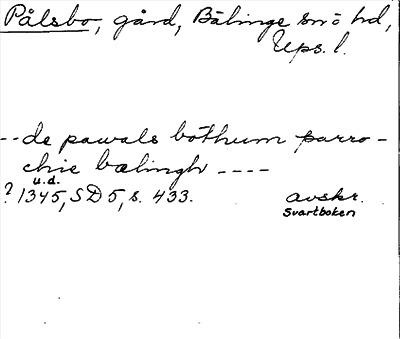 Pålsbo, gård, Bälinge sn o hd,
Ups. l.
-- de pawals bothum parro-
chie bælingh ----
? u.d.
1345, SD 5, s. 433. avskr.
Svartboken